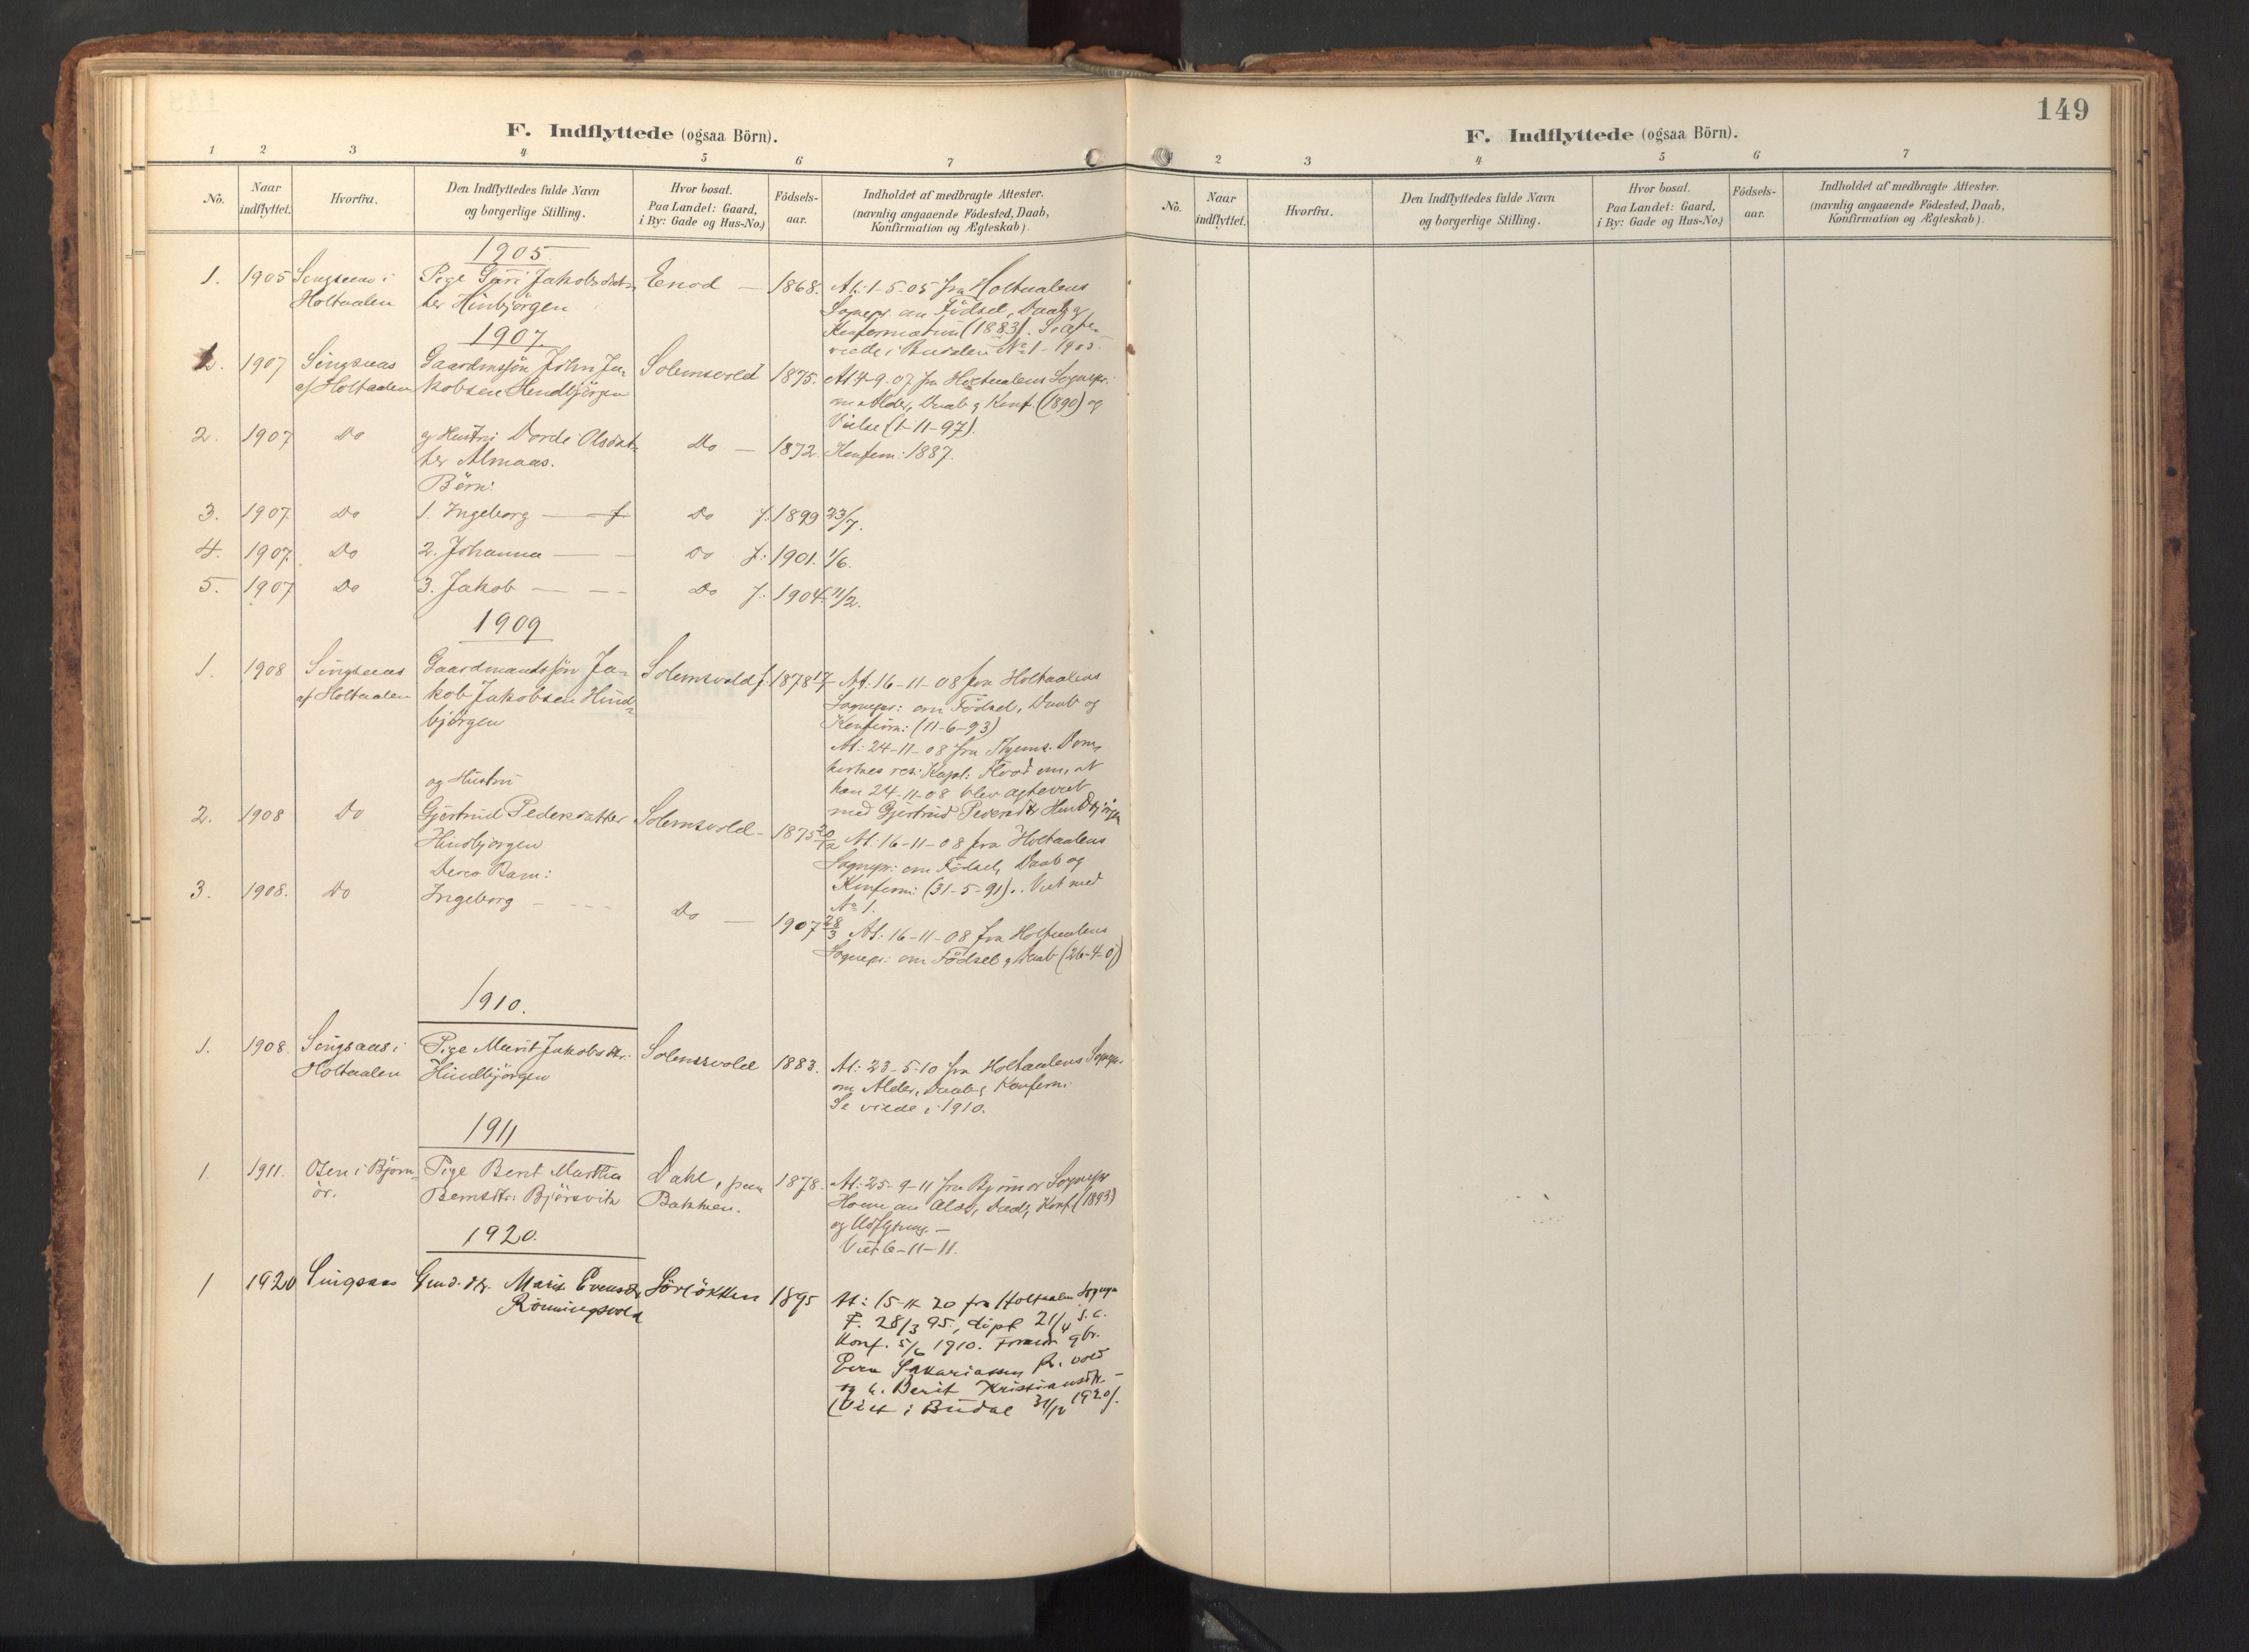 F. Indflyttede (ogsaa Börn).
1 2 3 4 5 6 7
No. Naar indflyttet. Hvorfra. Den Indflyttedes fulde Navn og borgerlige Stilling. Hvor bosat. Paa Landet: Gaard, i By: Gade og Hus-No.) Födsels-aar. Indholdet af medbragte Attester. (navnlig angaaende Födested, Daab, Konfirmation og Ægteskab).
1905.
1. 1905 Singsaas i Pige Guri Jakobsdat- Enod — 1868. At: 1-5-05 fra Holtaalens
Holtaalen ter Hinbjörgen Sognepr. om Födsel, Daab og
Konfirmation (1883). Se
viede i Budalen No 1 - 1905.
1907.
1. 1907 Singsaas Gaardmssjön John Ja- Solemsvold 1875. At 4-9-07 fra Holtaalens Sognepr.
af Holtaalen kobsen Hendbjörgen om Alder, Daab og Konf. (1890) og
Vielse (1-11-97).
2. 1907 Do og Hustru Dordi Olsdat- Do — 1872. Konfirm: 1887.
ter Almaas.
Börn:
3. 1907. Do 1. Ingeborg — Do f: 1899 23/7.
4. 1907. Do 2. Johanna — — Do f: 1901. 1/6.
5. 1907 Do 3. Jakob — — — Do f: 1904. 11/2.
1909
1. 1908 Singsaas Gaardmandssön Ja- Solemsvold f. 1878 17/7 At: 16-11-08 fra Holtaalens
af Holtaalen kob Jakobsen Hind- Sognepr: om Födsel, Daab og
björgen Konfirm: (11-6-93)
At: 24-11-08 fra Thjems. Dom-
kirkes res: Kapl: om, at
han 24-11-08 blev ægteviet
med Gjertrud Pedersdtr Hindbjörgen
og Hustru
2. 1908 Do Gjertrud Pedersdatter Solemsvold - 1875 20/12 At: 16-11-08 fra Holtaalens
Hindbjörgen Sognepr: om Födsel, Daab og
Konfirm: (31-5-91). Viet med
No 1.
Deres Barn:
3. 1908. Do Ingeborg — — — Do — 1907 28/3 At: 16-11-08 fra Holtaalens
Sognepr: om Födsel og Daab (26-4-07)
1910.
1. 1908. Singsaas i Pige Marit Jakobsdtr: Solemsvold 1883. At: 23-5-10 fra Holtaalens Sognepr.
Holtaalen Hindbjörgen om Alder, Daab og Konfirm:
Se viede i 1910.
1911
1. 1911. Osen i Björn- Pige Berit Martha Dahl, paa 1878. At: 25-9-11 fra Björnör Sognepr
ör. Berntsdtr: Björsvik Bakken. om Alder, Daab, Konf (1893)
og Udflytning. —
Viet 6-11-11.
1920.
1 1920 Singsaas Gmd. dtr. Marit Evensdtr Sörlökken 1895 At: 15-11-20 fra Holtaalen Sognepr
Rönningsvold F. 28/3 95, döpt 21/4 s.a.
Konf. 5/6 1910. Foreldr gbr.
Even Sakariassen R. vold
og h. Berit Kristiansdtr. —
(Viet i Budal 31/12 1920).
149
F. Indflyttede (ogsaa Börn).
2 3 4 5 6 7
No. Naar indflyttet. Hvorfra. Den Indflyttedes fulde Navn og borgerlige Stilling. Hvor bosat. Paa Landet: Gaard, i By: Gade og Hus-No.) Födsels-aar. Indholdet af medbragte Attester. (navnlig angaaende Födested, Daab, Konfirmation og Ægteskab).